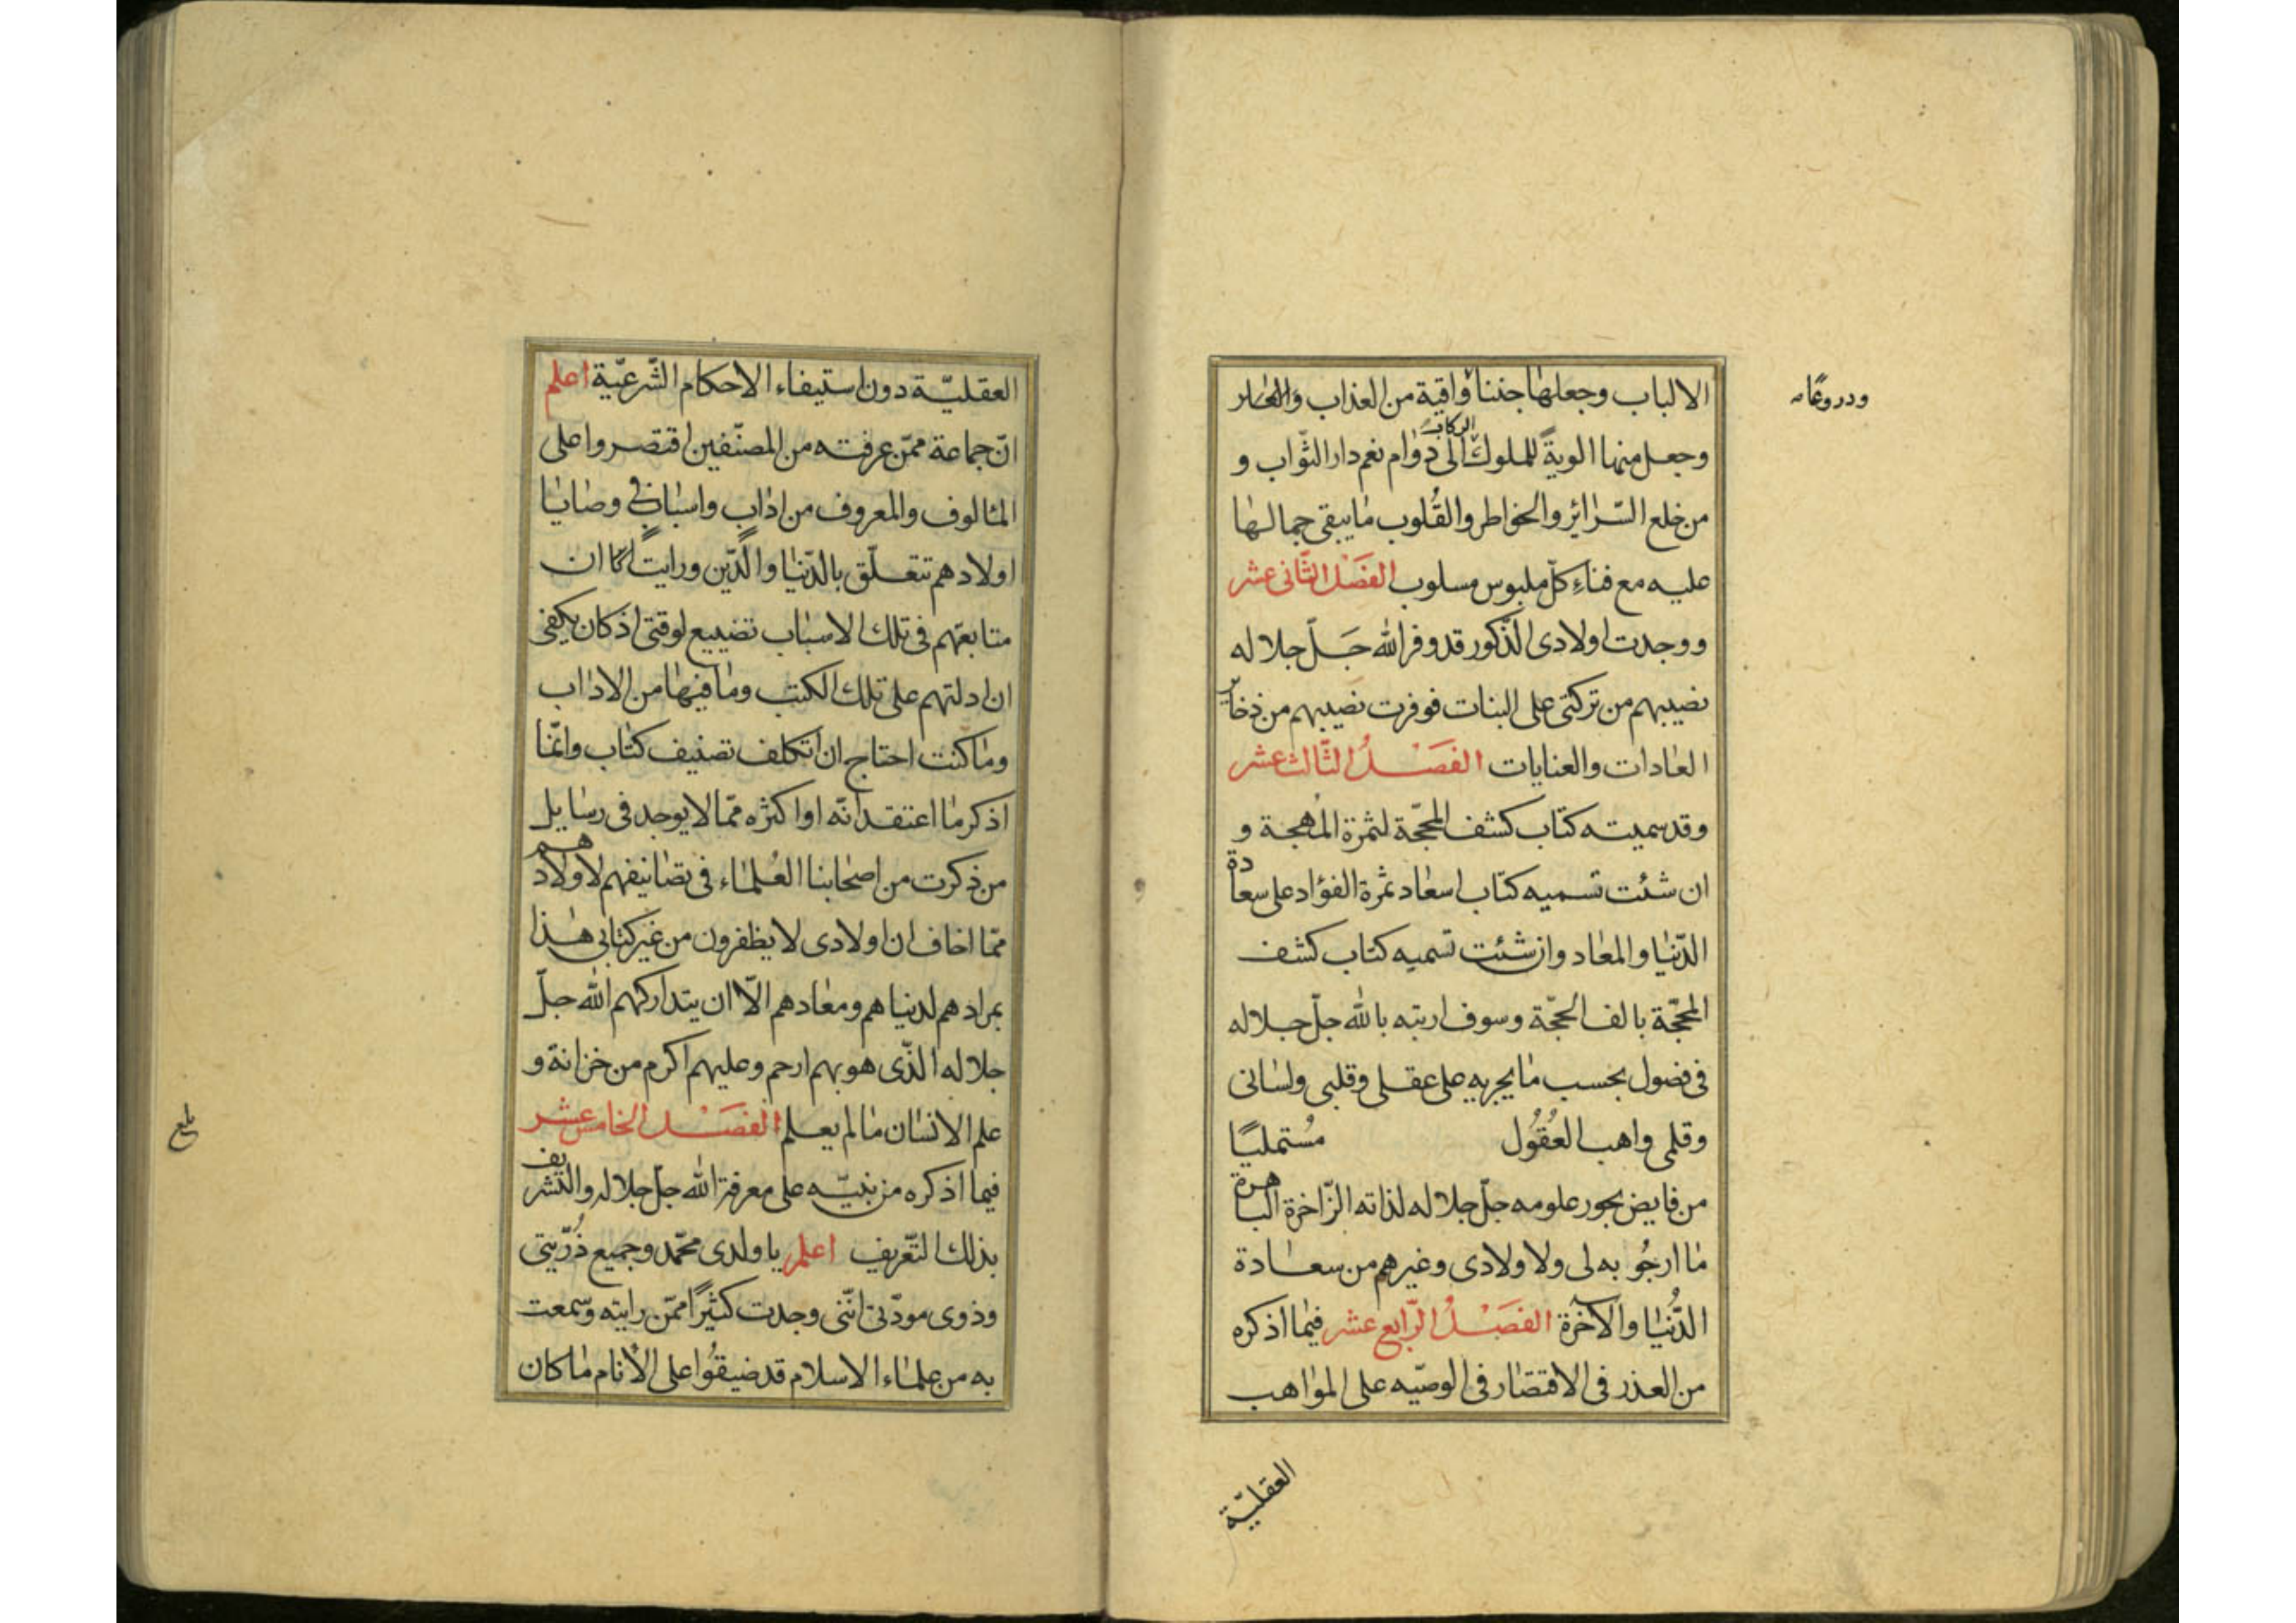 الالباب وجعلها جننا واقية من العذاب و
ودروعا
الركاب
وجعل منها الوية للملوك الى دوام نعم دار الثّواب و
من خلع السّرائر والخواطر والقُلوب ما يبقى جمالها
عليه مع فناءِ كلّ ملبوس مسلوب الفَصْل الثّانى عشر
ووجدت اولادى الذّكور قد وفر الله جَلّ جلاله
نصيبهم من تركتى على البنات فوفرت نصيبهم من ذخاير
العادات والعنايات الفصْلُ الثّالث عشر
وقد سميته كتاب كشف المحجّة لثمرة المُهجة و
ان شئت تسميه كتاب اسعاد ثمرة الفؤاد على سعادة
الدّنيا والمعاد وان شئت تسميه كتاب كشف
المحجّة بالف الحجّة وسوف ارتبه بالله جلّ جلاله
فى فصول بحسب ما يجريه على عقلى وقلبى ولسانى
وقلمى واهب العُقُول مُستمليًا
من فايض بحور علومه جلّ جلاله لذاته الزّاخرة الباهرة
ما ارجُو به لى ولاولادى وغيرهم من سعادة
الدُّنيا والآخرة الفصْلُ الرّابع عشر فيما اذكره
من العذر فى الاقتصار فى الوصيّه على المواهب
العقليّة
العقليّة دون استيفاء الاحكام الشّرعيّة اعلم
انّ جماعة ممّن عرفته من المصنّفين اقتصروا على
المالوف والمعروف من اداب واسباب فى وصايا
اولادهم تتعلّق بالدّنيا والدّين ورايت ان
متابعتهم فى تلك الاسباب تضييع لوقتى اذ كان يكفى
ان ادلتهم على تلك الكتب وما فيها من الاداب
وما كنت احتاج ان اتكلف تصنيف كتاب وانّما
اذكر ما اعتقد انّه او اكثره ممّا لا يوجد فى رسايل
من ذكرت من اصحابنا العُلماء فى تصانيفهم لاولادهم
ممّا اخاف ان اولادى لا يظفرون من غير كتابى هذا
بمرادهم لدنياهم ومعادهم الّا ان يتداركهم الله جلّ
جلاله الذّى هو بهم ارحم وعليهم اكرم من خزانة و
علم الانسان ما لم يعلم الفصْل الخامس عشر
فيما اذكره من تنبيه على معرفة الله جلّ جلاله والتشريف
بذلك التّعريف اعلم يا ولدى محمّد وجميع ذُرّيتى
وذوى مودّتى انّنى وجدت كثيرًا ممّن رايته وسمعت
به من علماء الاسلام قد ضيقُوا على الأنام ما كان
بلغ